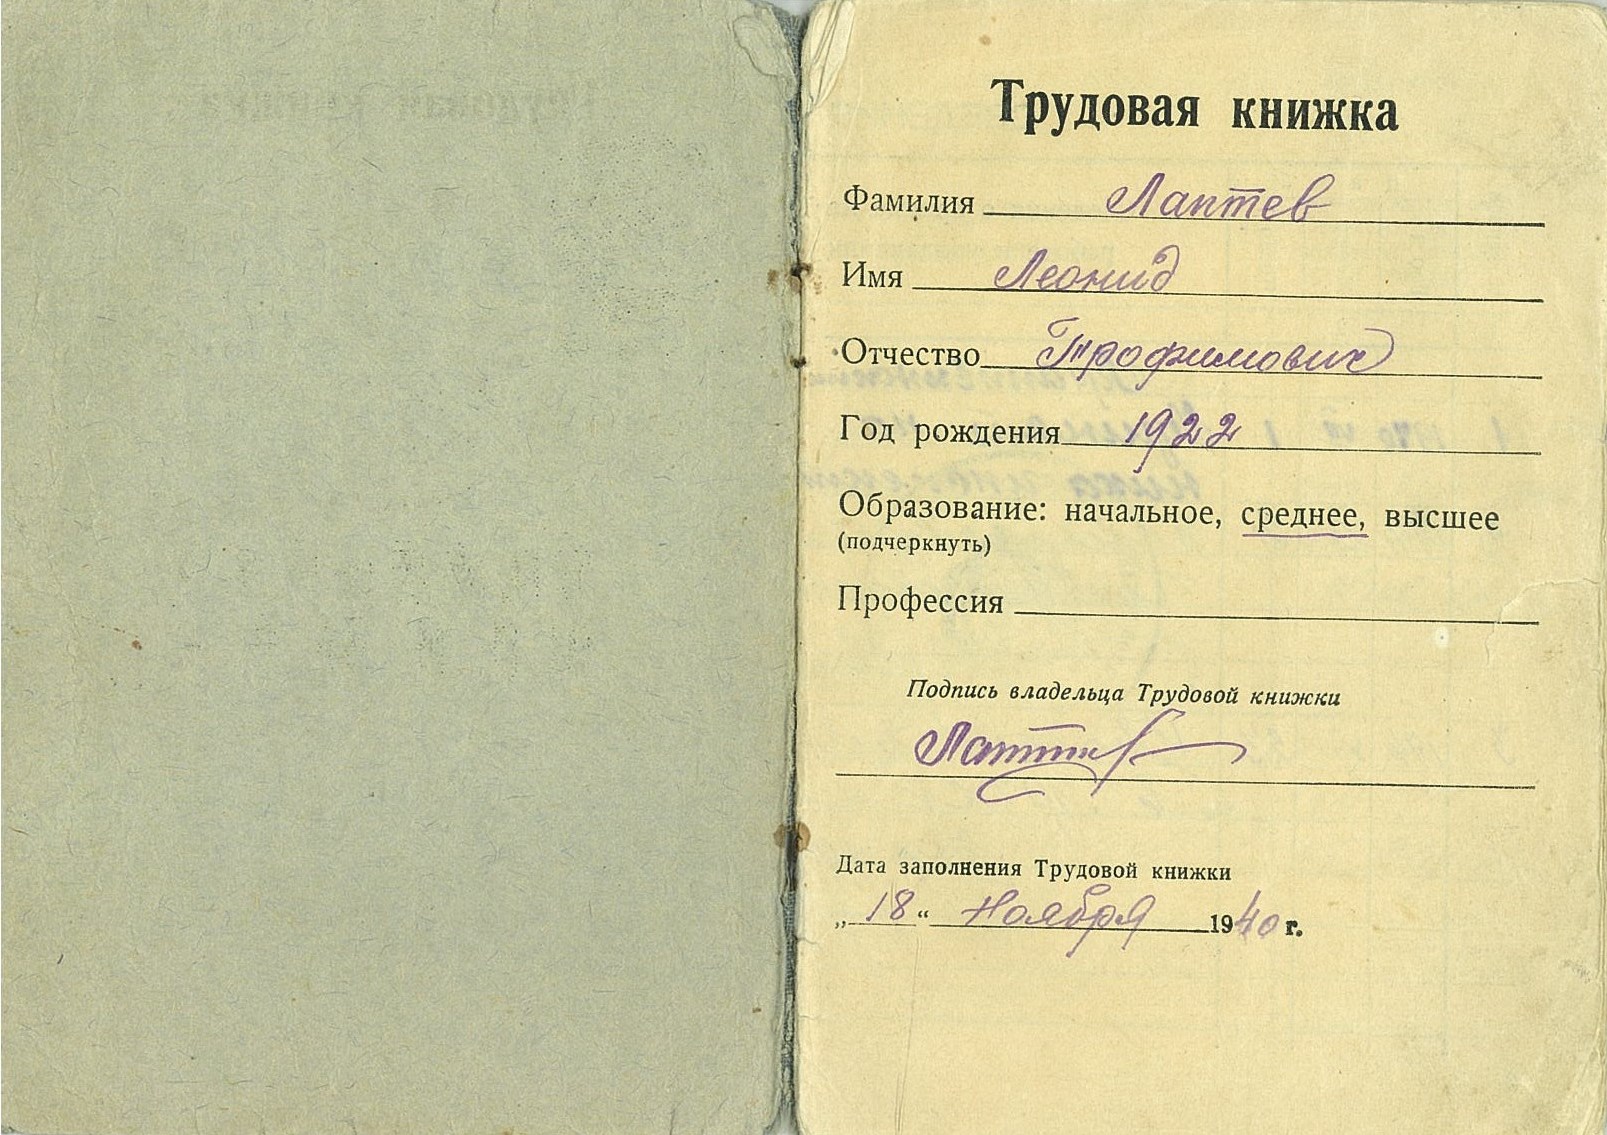 Трудовая книжка
Фамилия Лаптев
Имя Леонид
Отчество Трофимович
Год рождения 1922
Образование: начальное, среднее, высшее
(подчеркнуть)
Профессия
Подпись владельца Трудовой книжки
Лаптев
Дата заполнения Трудовой книжки
„18“ Ноября 1940 г.